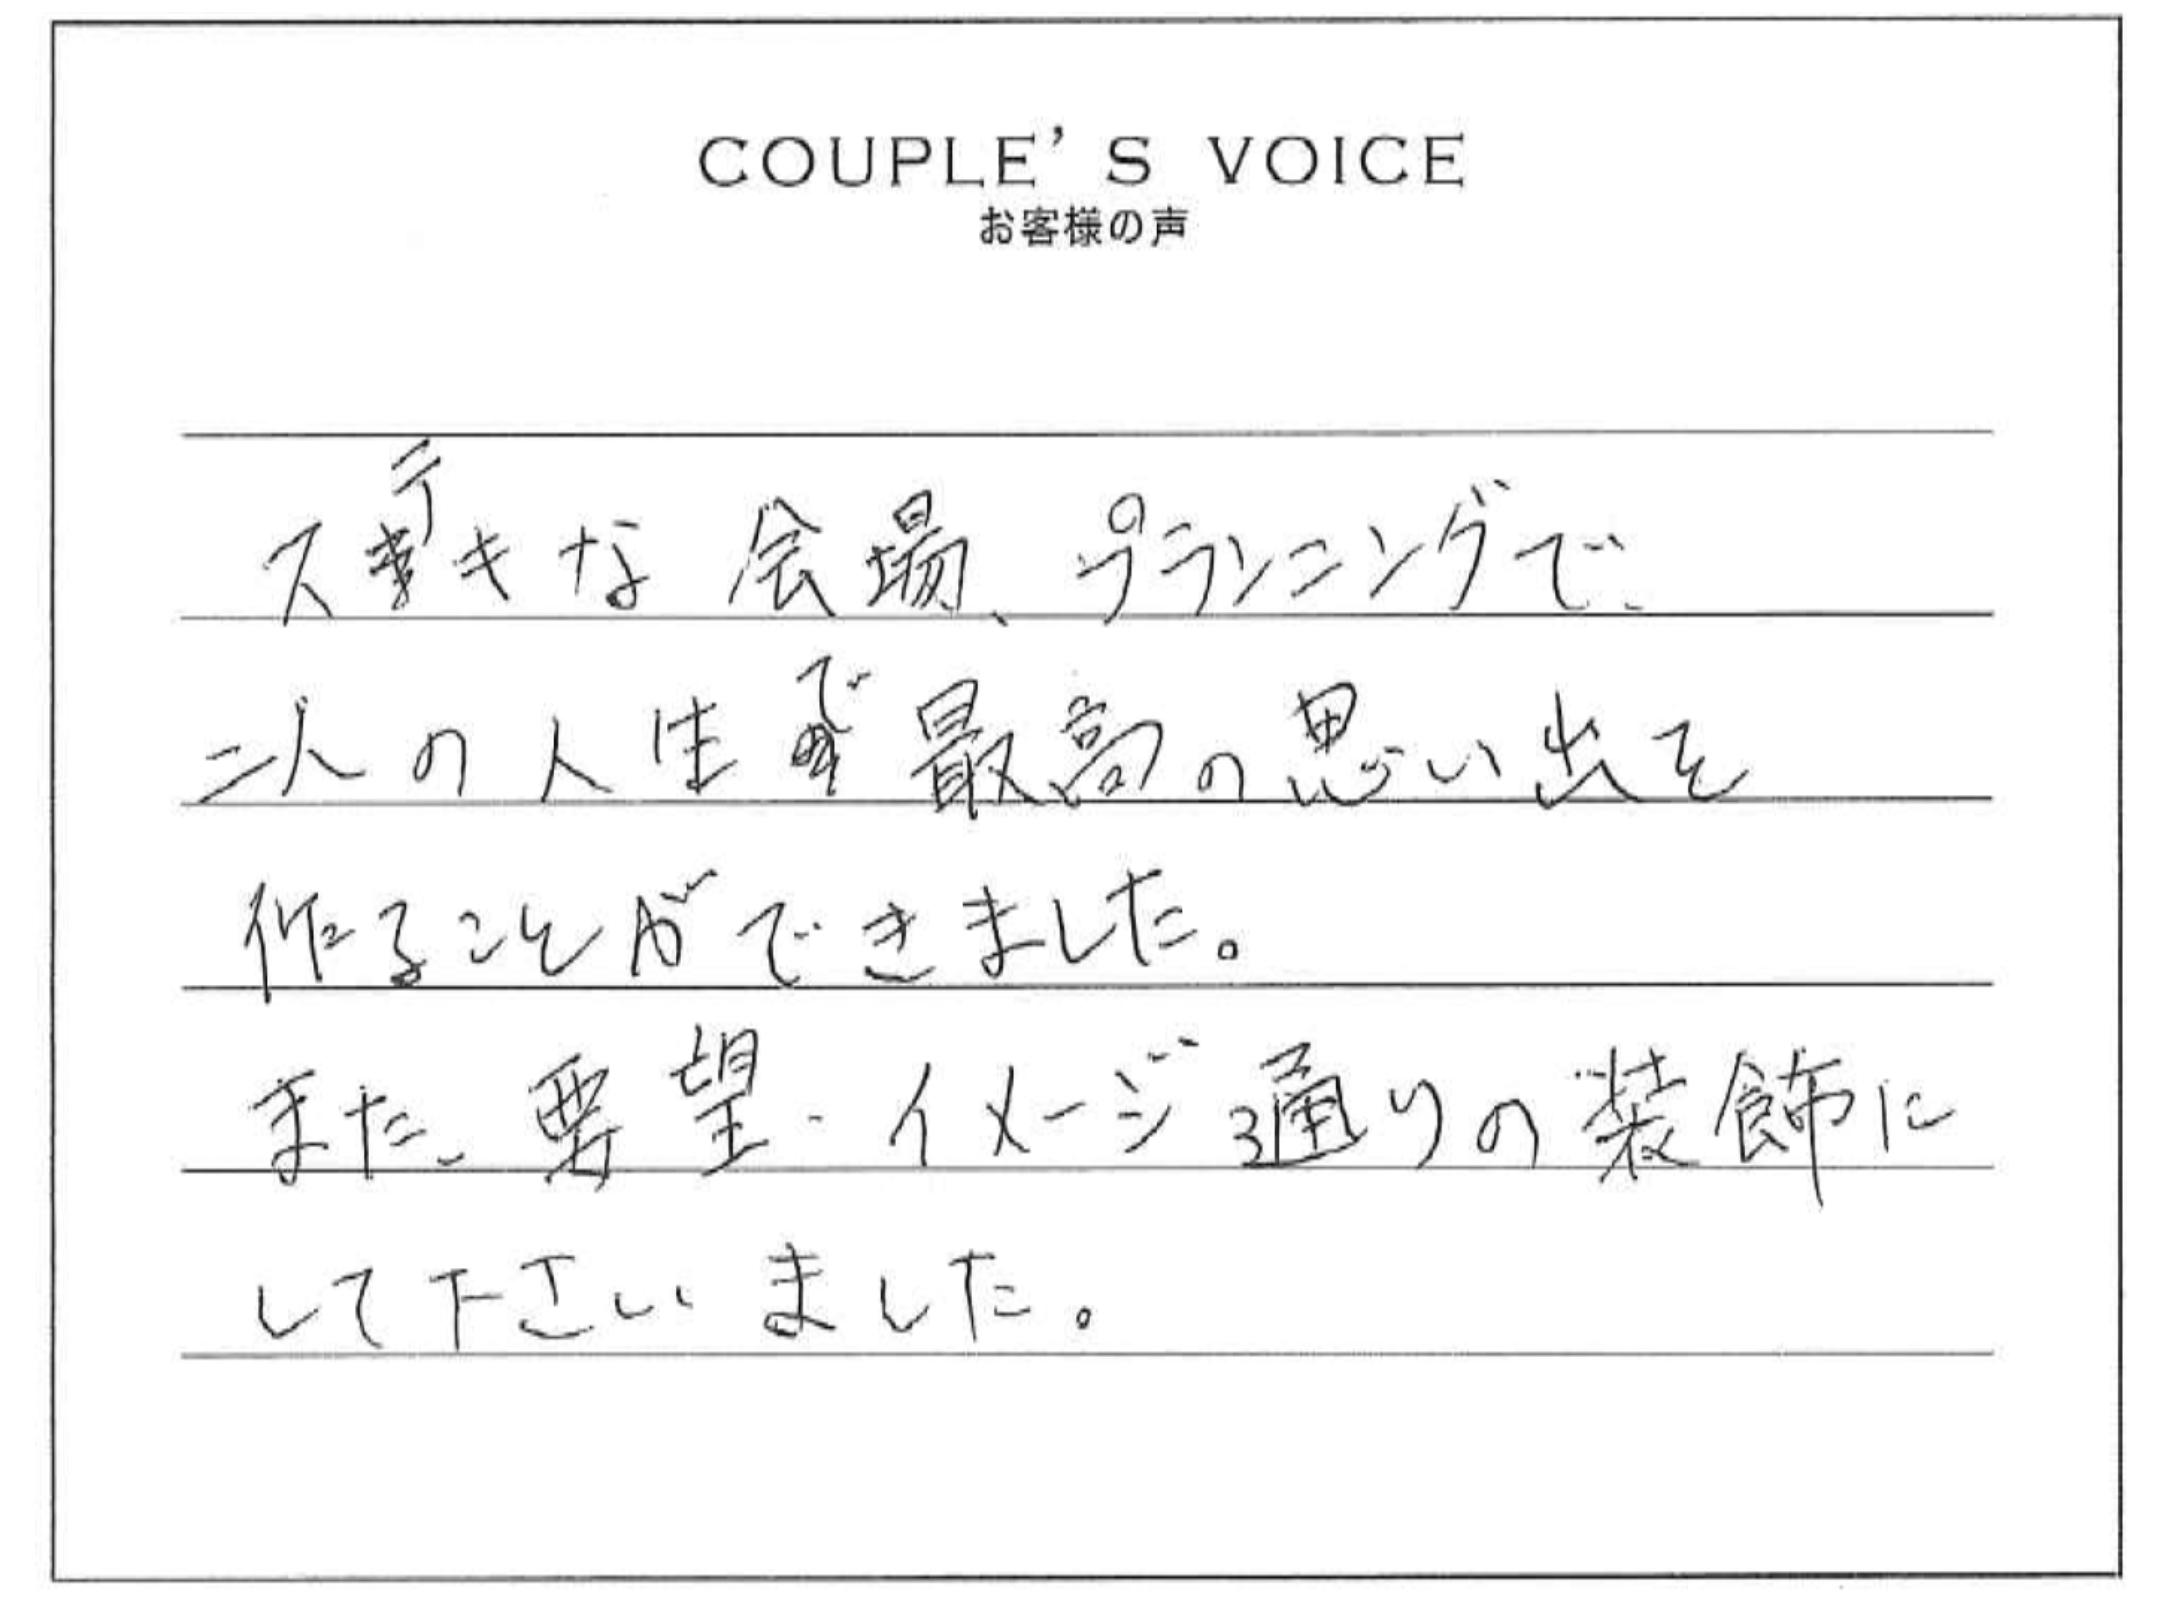 COUPLE'S VOICE
お客様の声
ステキな会場、プランニングで、
二人の人生で最高の思い出を
作ることができました。
また、要望・イメージ通りの装飾に
して下さいました。